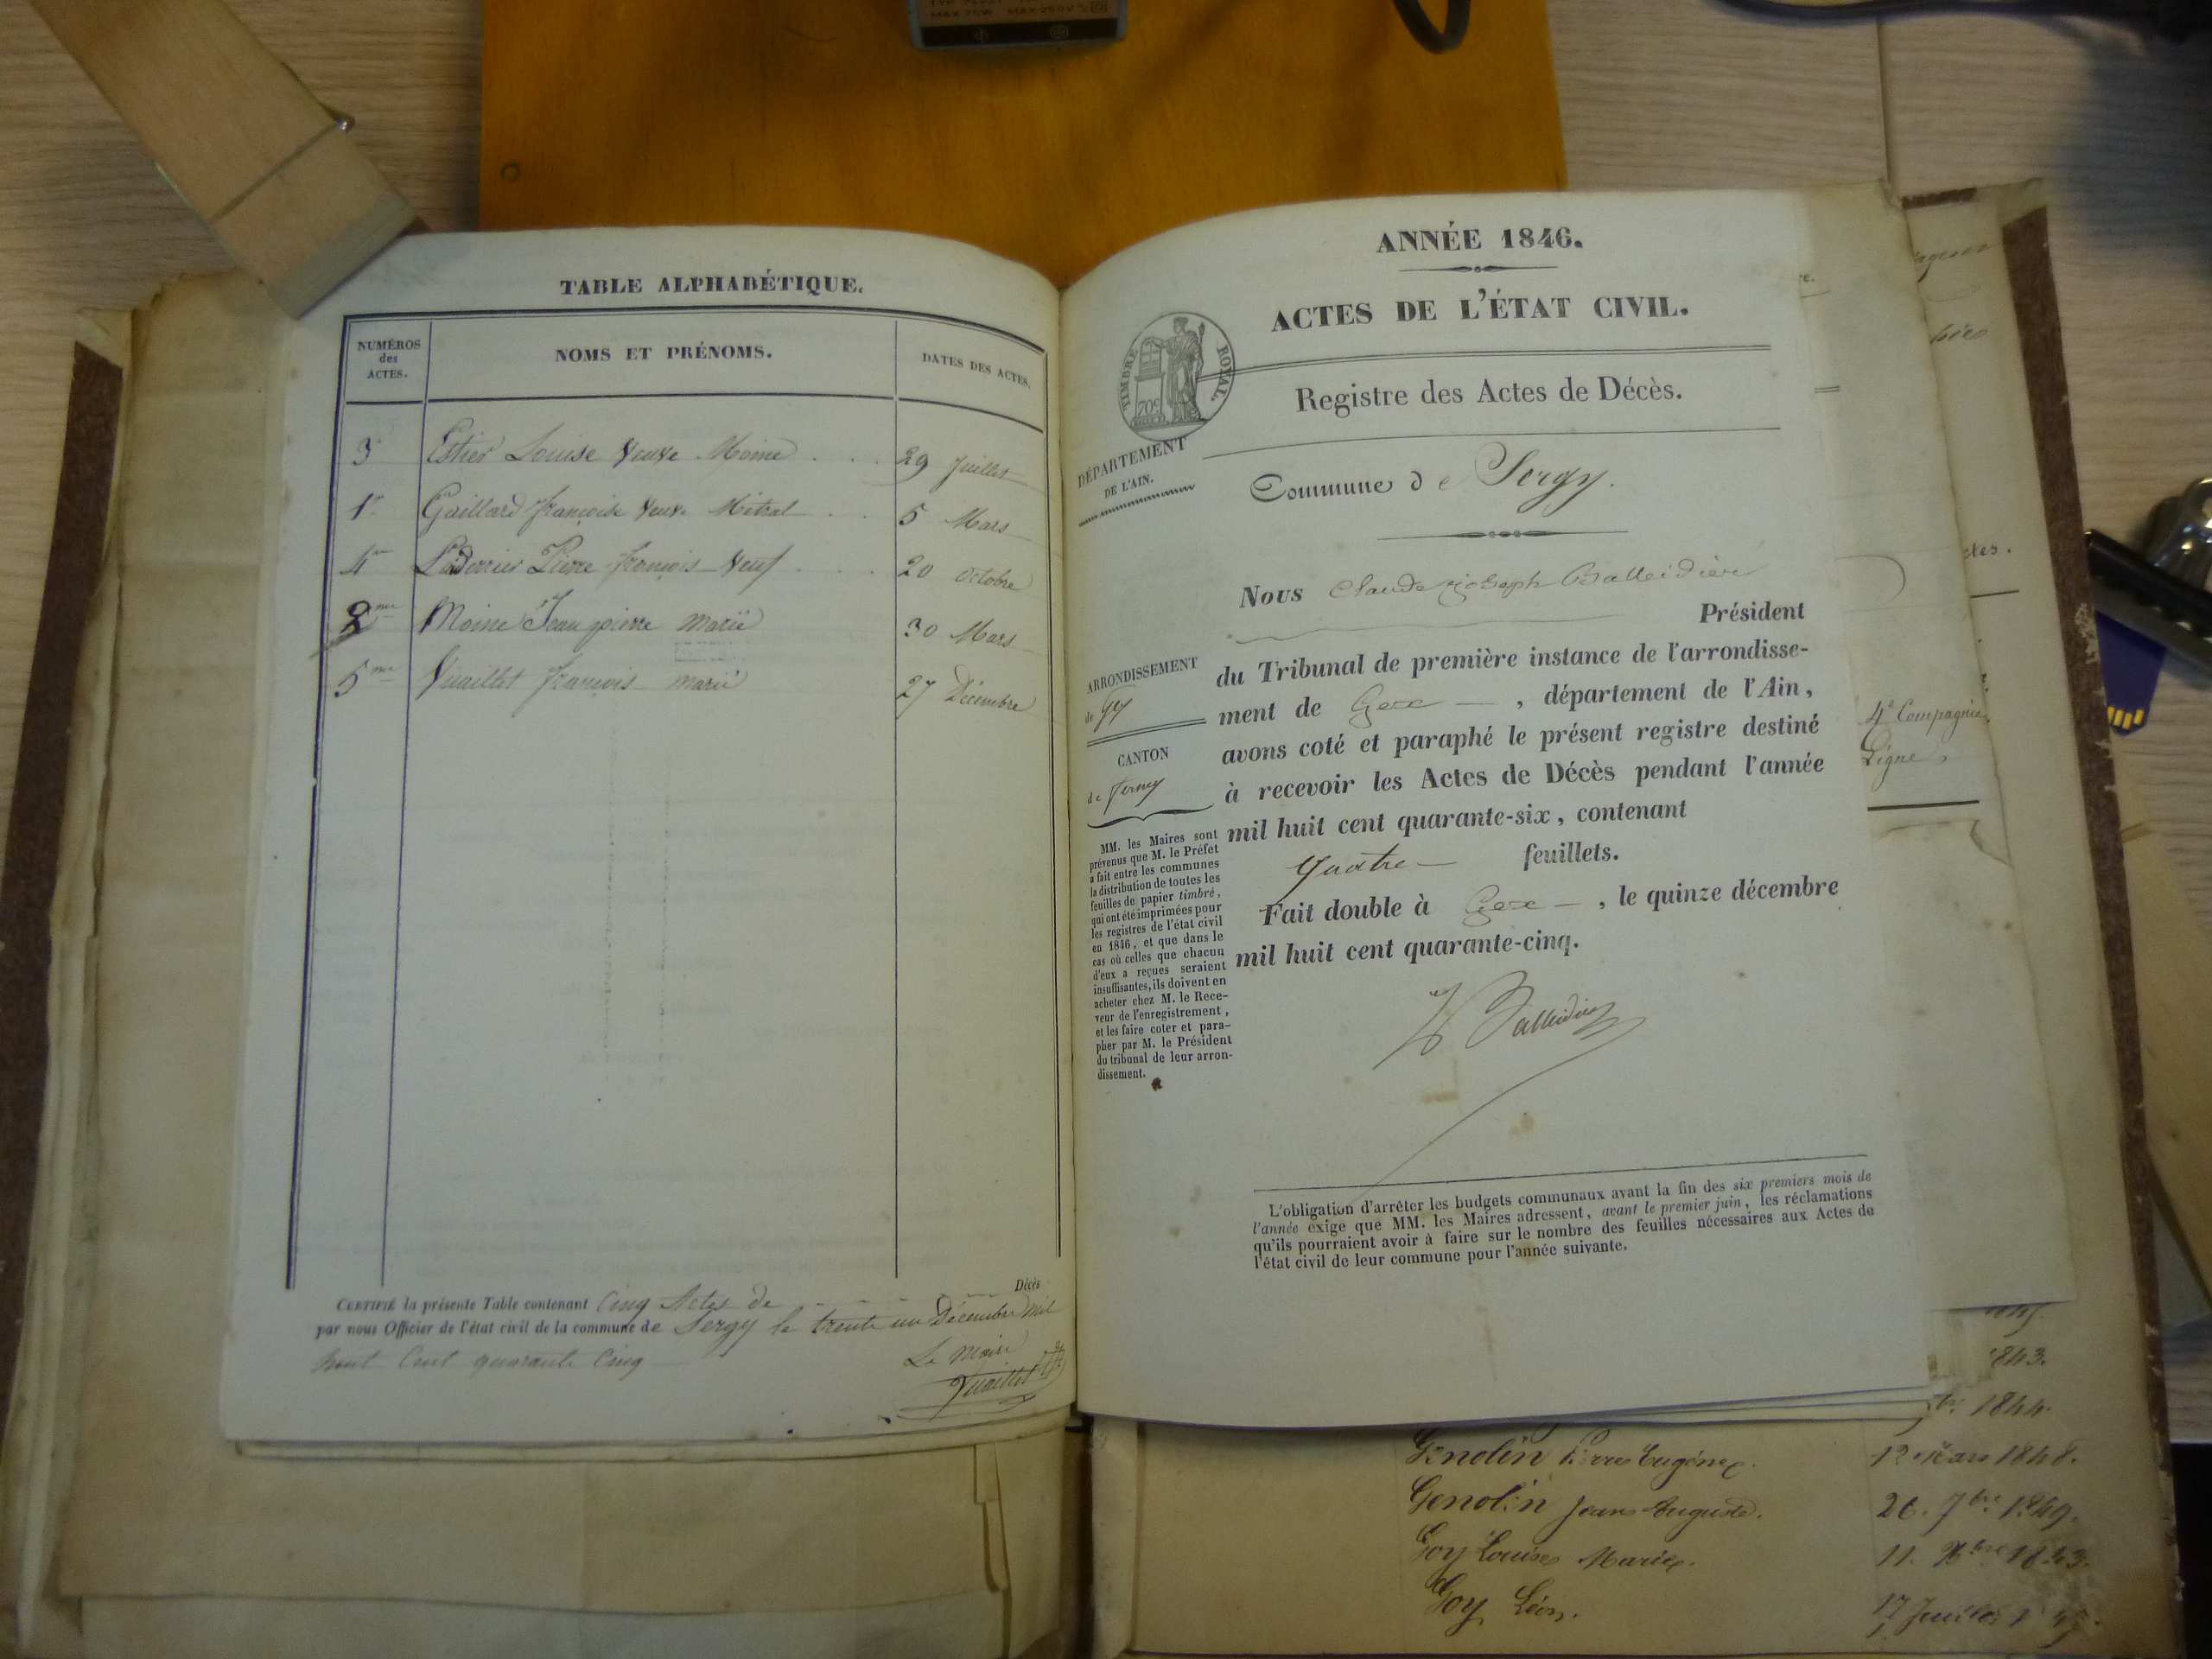 TABLE ALPHABÉTIQUE.
NUMÉROS
des
ACTES.
NOMS ET PRÉNOMS.
DATES DES ACTES.
3 Estier Louise Veuve Moine . . . 29 Juillet
1er Gaillard françoise Veuve Métral . . 5 Mars
4me Pierre françois Veuf . . . 20 Octobre
2me Moine Jean pierre Marié 30 Mars
5me Vuaillet françois marié 27 Décembre
CERTIFIÉ la présente Table contenant Cinq Actes de Décès
par nous Officier de l'état civil de la commune de Sergy le trente un Décembre mil
huit Cent quarante Cinq
Le Maire
Vuaillet
ANNÉE 1846.
ACTES DE L'ÉTAT CIVIL.
TIMBRE ROYAL.
70c
Registre des Actes de Décès.
DÉPARTEMENT
DE L'AIN.
Commune de Sergy.
Nous Claude Joseph Balleidier
Président
ARRONDISSEMENT
de Gex
CANTON
de Ferney
du Tribunal de première instance de l'arrondisse-
ment de Gex , département de l'Ain,
avons coté et paraphé le présent registre destiné
à recevoir les Actes de Décès pendant l'année
mil huit cent quarante-six, contenant
quatre feuillets.
Fait double à Gex , le quinze décembre
mil huit cent quarante-cinq.
Balleidier
MM. les Maires sont
prévenus que M. le Préfet
a fait entre les communes
la distribution de toutes les
feuilles de papier timbré,
qui ont été imprimées pour
les registres de l'état civil
en 1846, et que dans le
cas où celles que chacun
d'eux a reçues seraient
insuffisantes, ils doivent en
acheter chez M. le Rece-
veur de l'enregistrement,
et les faire coter et para-
pher par M. le Président
du tribunal de leur arron-
dissement.
L'obligation d'arrêter les budgets communaux avant la fin des six premiers mois de
l'année exige que MM. les Maires adressent, avant le premier juin, les réclamations
qu'ils pourraient avoir à faire sur le nombre des feuilles nécessaires aux Actes de
l'état civil de leur commune pour l'année suivante.
4e Compagnie
Ligne
1843.
1844.
Genolin Pierre Eugène. 12 Mars 1848.
Genolin Jean Auguste. 26. 7bre 1849.
Goy Louise Marie. 11.
Goy Léon. 17 Juillet